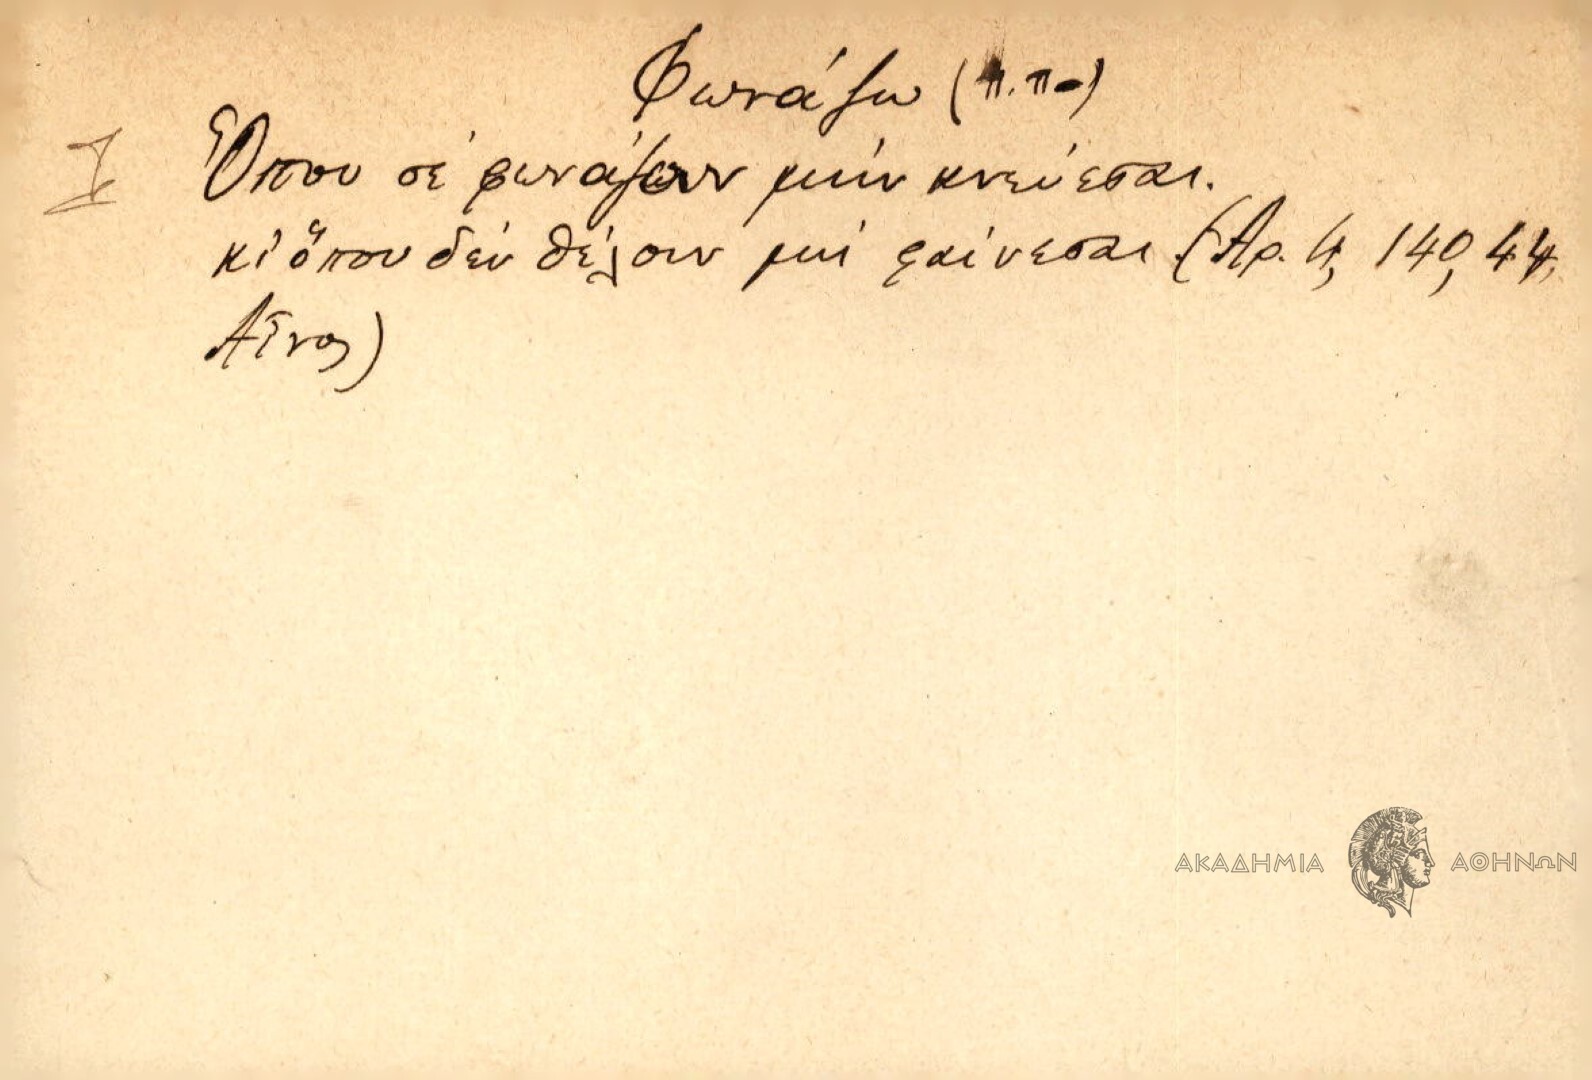 Φωνάζω (π.π-)
I Ὅπου σέ φωνάζουν μήν κνεύεσαι.
κι' ὅπου δέν θέλουν μή φαίνεσαι. (Ἀρ. 4, 140, 44,
Αἶνος)
ΑΚΑΔΗΜΙΑ ΑΘΗΝΩΝ